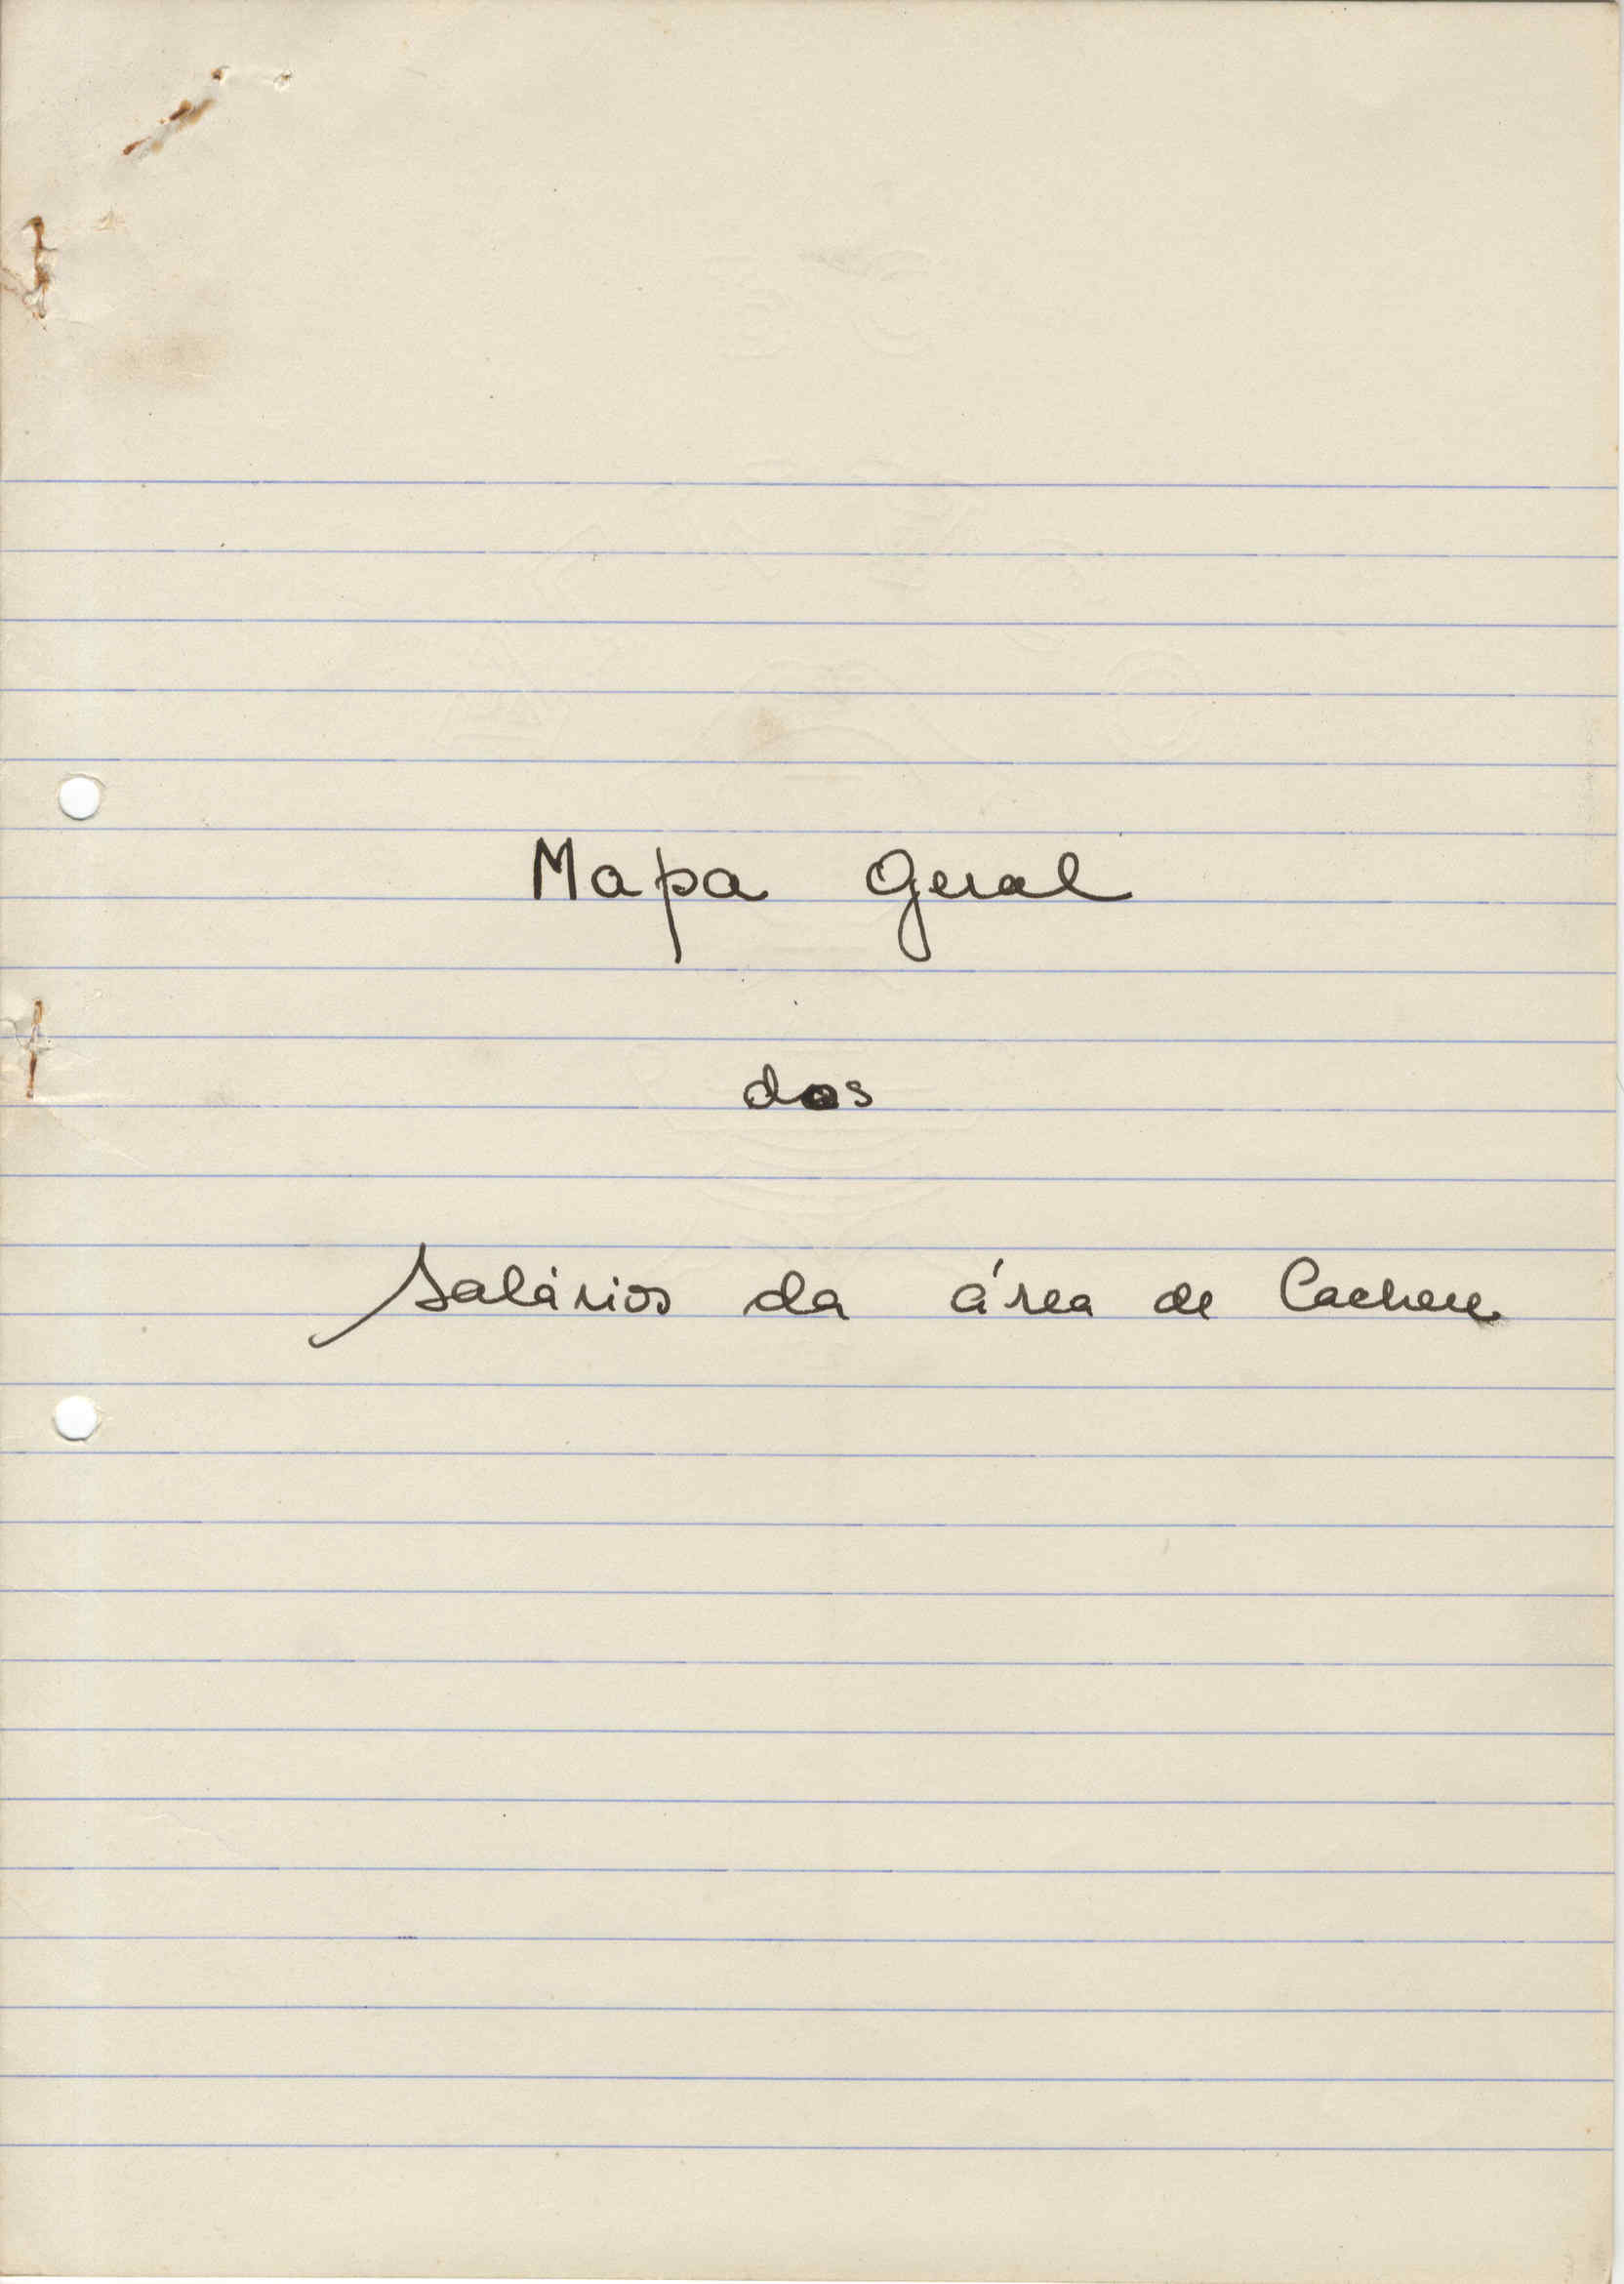 Mapa geral
dos
salários da área de Cacheu